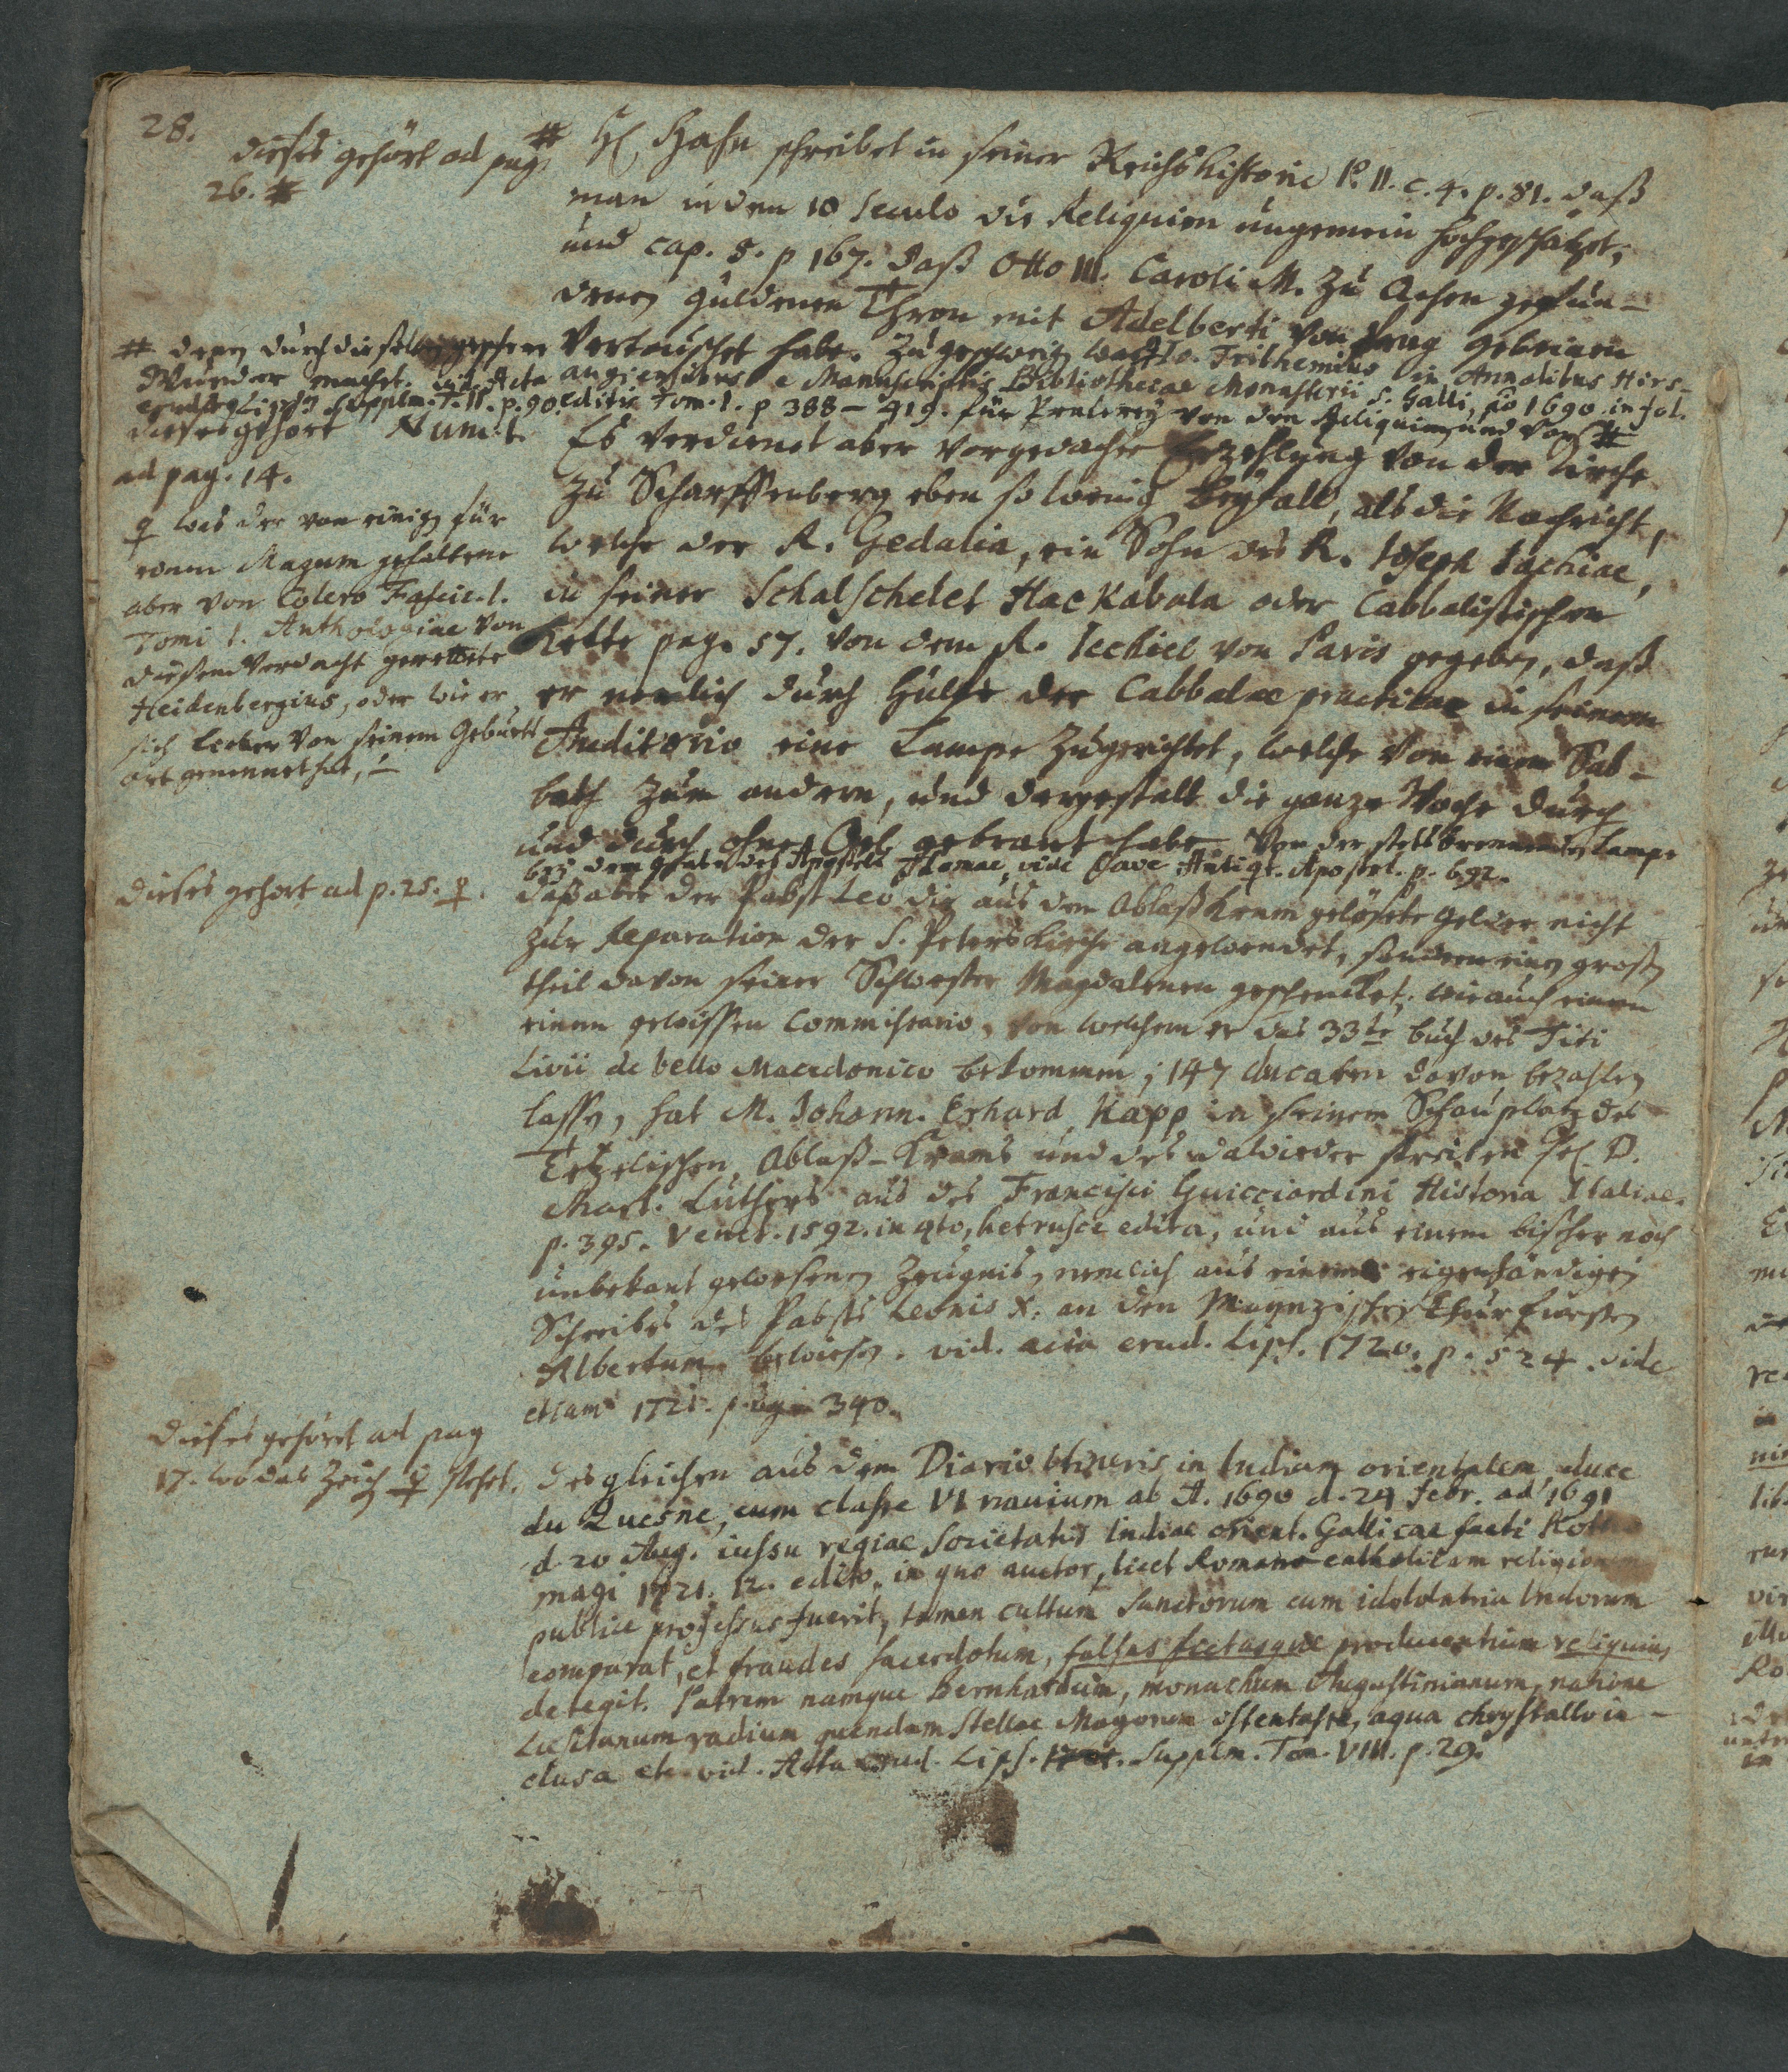 28.
dieses gehört ad pag.
26. #
# H. Hahn schreibet in seiner Reichshistorie P. II. c. 4. p. 81. daß
man in dem 10 Seculo die Reliquien ungemein hochgeschätzet,
und cap. 8. p 167. daß Otto III. Caroli M. zu Achen gefun-
denen güldenen Thron mit Adelberti von Prag gebeinen
vertauschet habe. Zugeschweigen was Io. Trithemius in Annalibus Hirs-
augiensibus e Manuscriptis Bibliothecae Monasterii S. Galli, ao 1690. in fol.
editis Tom. 1. p 388 - 419. für Prahlerey von den Reliquien und von #
# denen durch dieselben geschehenen
Wunder machet. vid. Acta
erud. Lips. Supplm. T. II. p. 90.
dieses gehört Num. 1.
ad pag. 14.
Es verdienet aber vorgedachte Erzehlung von der Kirche
zu Scharffenberg eben so wenig Beyfall, als die Nachricht,
welche der R. Gedalia, ein Sohn des R. Joseph Jachiae,
in seiner Schalschelet Hackabala oder Cabbalistischen
Kette pag. 57. von dem R. Jechiel von Paris gegeben, daß
er nemlich durch Hülfe der Cabbalae practicae in seinem
Auditorio eine Lampe zugerichtet, welche von einem Sab-
bath zum andern, und dergestalt die ganze Woche durch
und durch ohne Oel gebrant habe. Von der stets brennenden Lampe
bey dem Grabe des Apostels Thomae, vide Cave Antiqt. Apostol. p. 692.
♀ was der von einigen für
einen Magum gehaltene
aber von Colero Fascic. 1.
Tomi 1. Anthologiae von
diesem Verdacht gerettete
Heidenbergius, oder wie er
sich lieber von seinem Geburts
ort genennet hat,
dieses gehört ad p. 25. ♀.
daß aber der Pabst Leo die aus dem Ablaßkram gelösete Gelder nicht
zur Reparation der S. Peterskirche angewendet, sondern einen großen
theil davon seiner Schwester Magdalenen geschencket, wie auch einem
einem gewissen Commissario, von welchem er das 33te buch des Titi
Livii de bello Macedonico bekommen, 147 ducaten davon bezahlen
lassen, hat M. Johann. Erhard Kapp in seinem Schauplatz des
Tetzelischen Ablaß-Krams und des dawieder streitenden Hl. D.
Mart. Luthers aus des Francisci Guicciardini Historia Italiae.
p. 395. Venet. 1592. in qto, hetrusce edita, und aus einem bißher noch
unbekant gewesenen Zeugnis, nemlich aus einem eigenhändigen
Schreiben des Pabsts Leonis X. an den Maynzischen Churfürsten
Albertum bewiesen. vid. acta erud. Lips. 1720. p. 524. vide
etiam 1721. pag. 340.
dieses gehöret ad pag
17. wo das Zeichen ♀ stehet.
desgleichen aus dem Diario itineris in Indiam orientalem, duce
du Quesne, cum classe VI navium ab A. 1690 d. 24 febr. ad 1691
d. 20 Aug. iussu regiae Societatis Indiae orient. Gallicae facti Rotho
magi 1721. 12. edito, in quo auctor, licet Romano catholicam religionem
publice professus fuerit, tamen cultum Sanctorum cum idololatria Indorum
comparat, et fraudes sacerdotum, falsas fictasque producentium reliquias,
detegit. Patrem namque Bernhardum, monachum Augustinianum, natione
Lusitanum radium quendam Stellae Magorum ostentasse, aqua chrystallo in-
clusa etc. vid. Acta Erud. Lips. Supplm. Tom. VIII. p. 29.